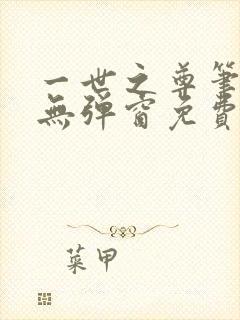 一世之尊筆
無彈窗免費
菜甲